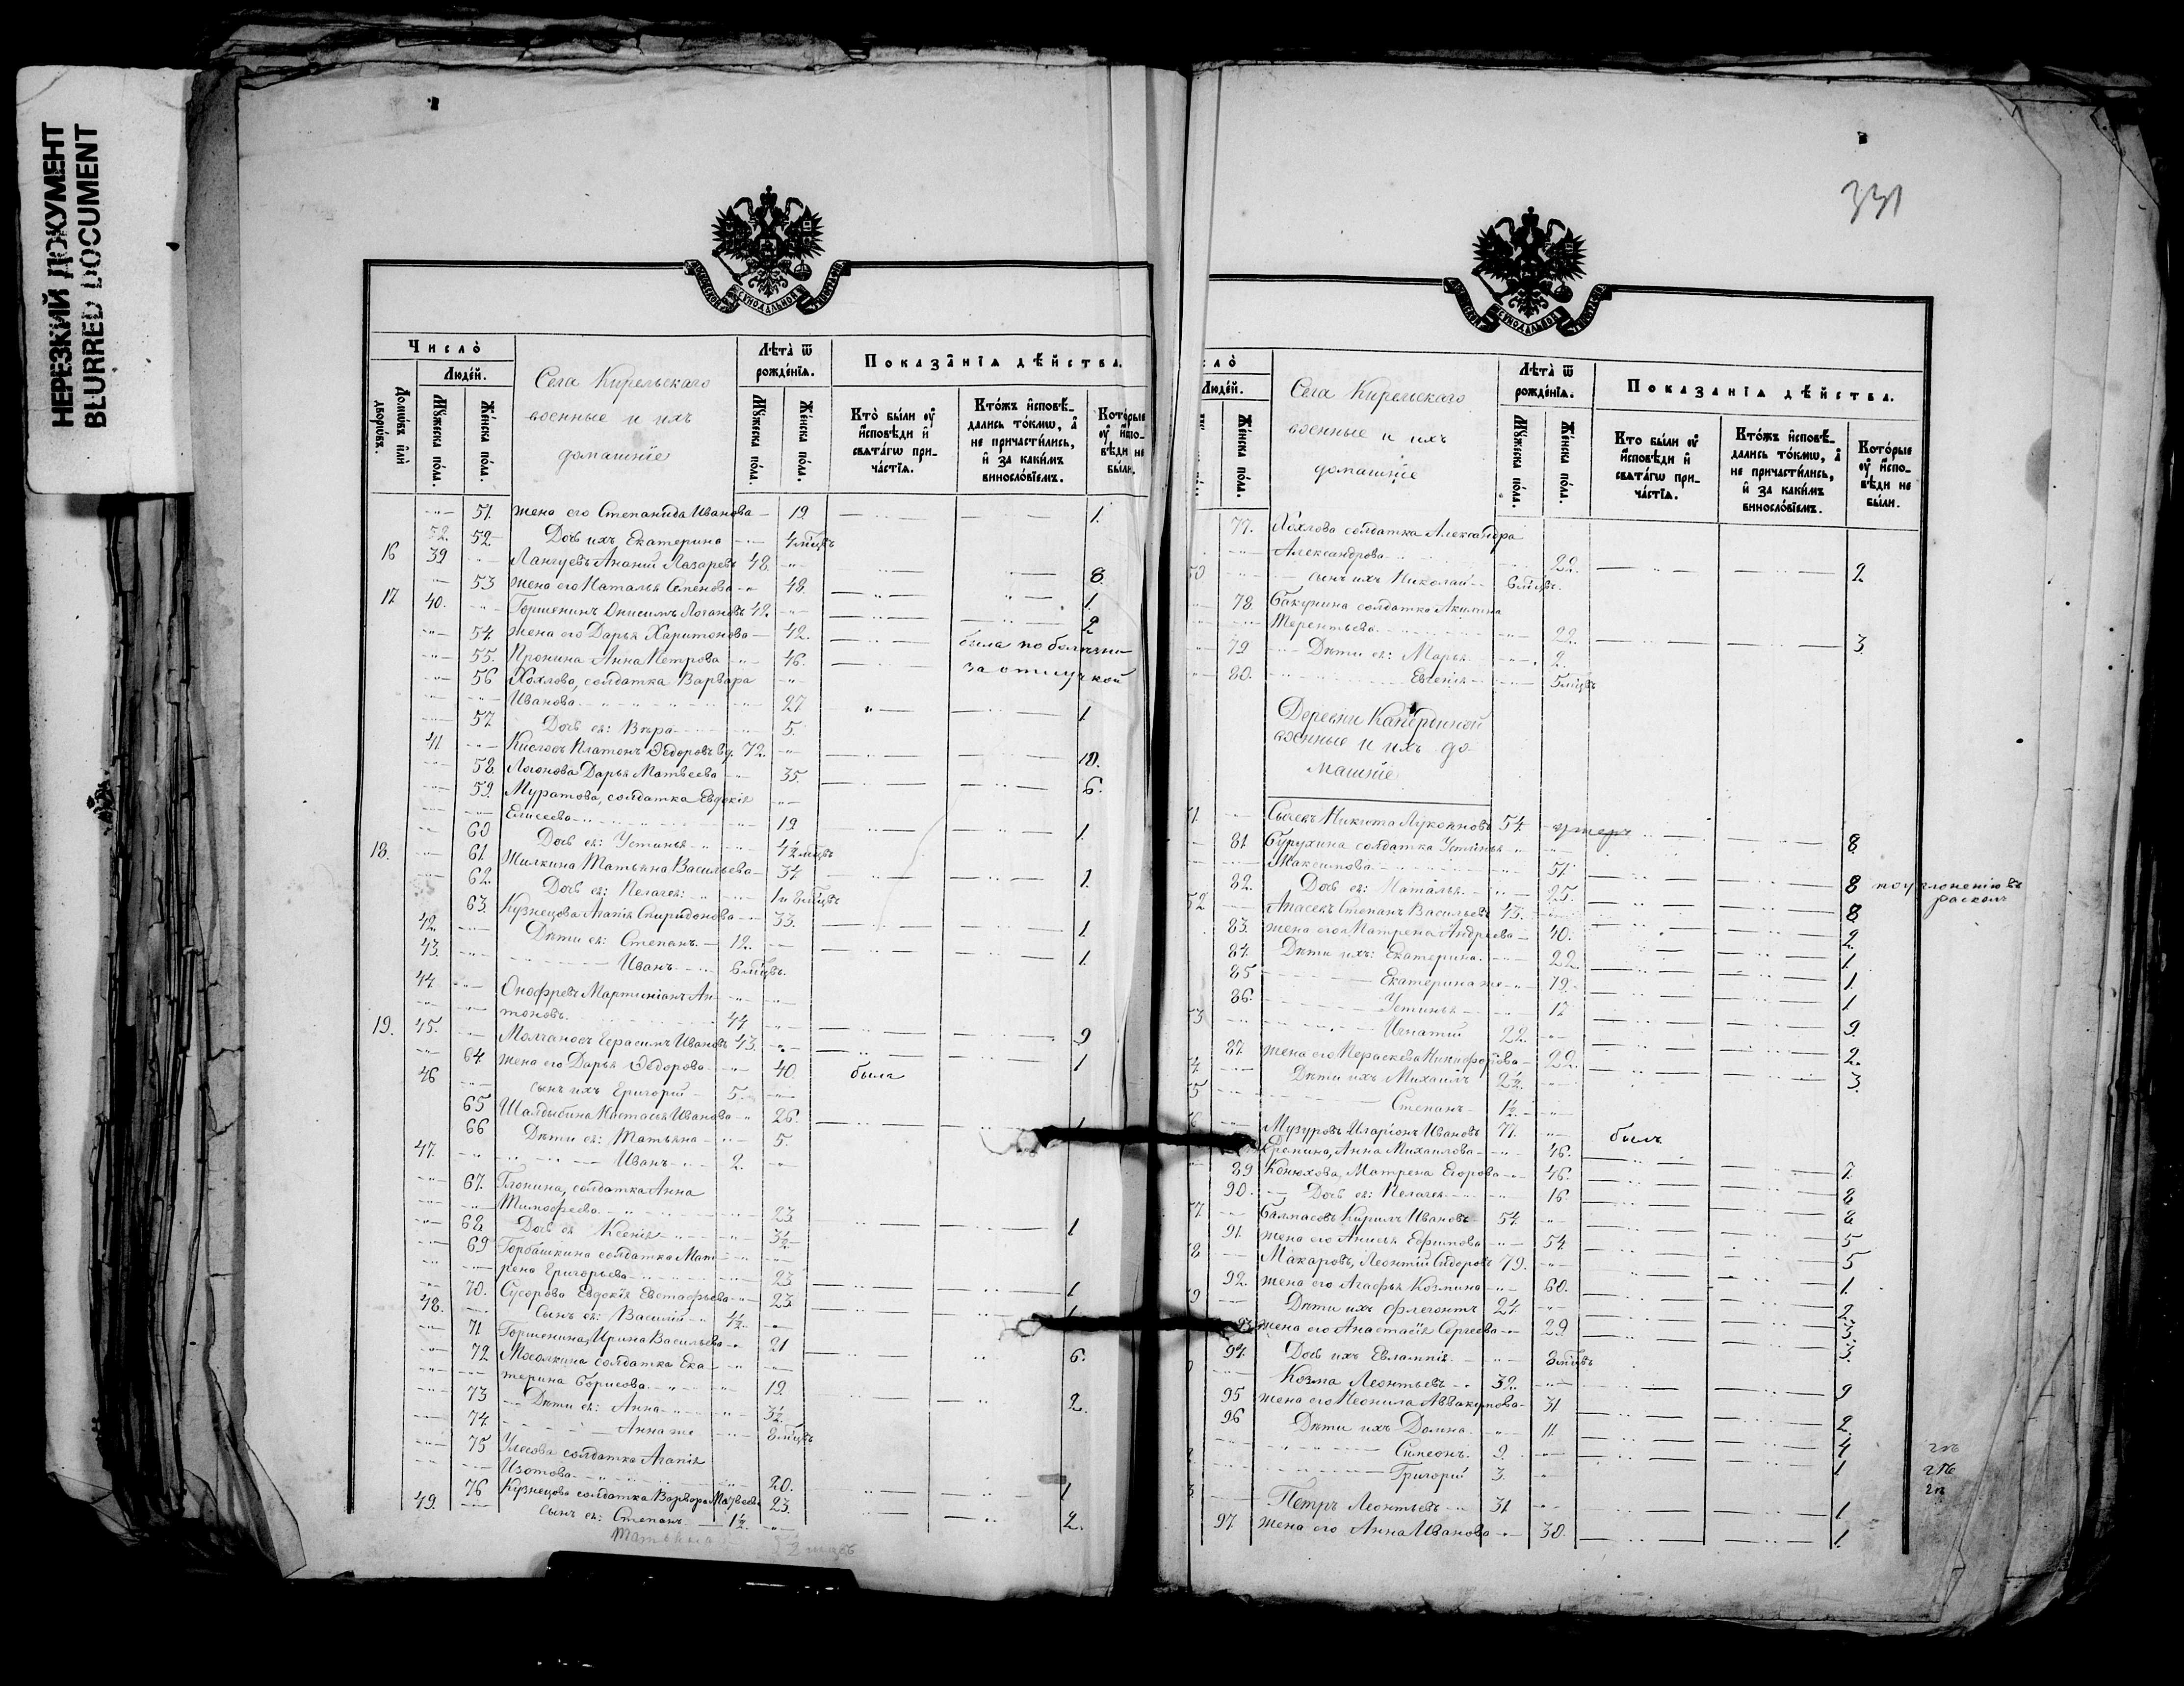 НЕРЕЗКИЙ ДОКУМЕНТ
BLURRED DOCUMENT
Число̀
Лѣта̀ ѿ рожде́нїѧ.
Показа̑нїѧ дѣ́йства.
Домѡ́въ и҆лѝ дворѡ́въ.
Люде́й.
Мꙋ́жеска по́ла.
Же́нска по́ла.
Села Кирельскаго
военные и ихъ
домашніе
Мꙋ́жеска по́ла.
Же́нска по́ла.
Кто̀ бы́ли ᲂу҆ и҆сповѣди и҆ свѧта́гѡ прича́стїѧ.
Кто́жъ и҆сповѣ́дались то́кмѡ, а҆ не причасти́лись, и҆ за каки́мъ винословїемъ.
Кото́рые ᲂу҆ и҆сповѣди не бы́ли.
51. жена его Степанида Иванова 19. 1.
52. Дочь ихъ Екатерина 4 мцвъ
16 39 Лангуевъ Ананій Лазаревъ 48. 8.
53 жена его Наталья Семенова 48. 1.
17 40. Горшенинъ Онисимъ Логановъ 42. 2.
54. жена его Дарья Харитонова 42. была по болѣзни
55. Пронина Анна Петрова 46. за отлучкой
56 Хохлова, солдатка Варвара
Иванова 27 1
57 Дочь ея: Вѣра 5.
41 Кислевъ Платонъ Ѳедоровъ вд. 72. 10.
58. Логонова Дарья Матвеева 35. 6.
59. Муратова, солдатка Евдокія
Елисеева 19 1.
60 Дочь ея: Устинья 4½ мцвъ
18. 61 Жилкина Татьяна Васильева 34 1.
62. Дочь ея: Пелагея: 1 и 8 мцвъ
63. Кузнецова Агапія Спиридонова 33. 1.
42. Дѣти ея: Степанъ 12. 1.
43. Иванъ 6 мцвъ.
44 Онофревъ Мартиніанъ Ан
тоновъ. 44 9
19. 45. Молчановъ Герасимъ Ивановъ 43. 1
64. жена его Дарья Ѳедорова 40. была
46 сынъ ихъ Григорій 5.
65 Шалдыбина Настасья Иванова 26. 1
66 Дѣти ея: Татьяна 5.
47. Иванъ 2.
67. Глонина, солдатка Анна
Тимофеева 23 1
68. Дочь ея Ксенія 3½
69 Горбашкина солдатка Мат
рена Григорьева 23 1
70. Сусорова Евдокія Евстафьева 23 1
48. Сынъ ея: Василій 4½
71 Горшенина, Ирина Васильева 21 6.
72 Мосолкина солдатка Ека
терина Борисова 19. 2.
73 Дѣти ея: Анна 3½
74. Анна же 8 мцвъ
75 Улесова солдатка Агапія
Изотова 20. 1
76 Кузнецова солдатка Варвара Матвеева 23. 2.
49. сынъ ея: Степанъ 1½.
Татьяна
331
Люде́й.
Же́нска по́ла.
Села Кирельскаго
военные и ихъ
домашніе
Лѣта̀ ѿ рожде́нїѧ.
Мꙋ́жеска по́ла.
Же́нска по́ла.
Показа̑нїѧ дѣ́йства.
Кто бы́ли ᲂу҆ и҆сповѣди и҆ свѧта́гѡ прича́стїѧ.
Кто́жъ и҆сповѣ́дались то́кмѡ, а҆ не причасти́лись, и҆ за каки́мъ винословїемъ.
Кото́рые ᲂу҆ и҆сповѣди не бы́ли.
77. Лохлова солдатка Александра
Александрова 22. 2
50 сынъ ихъ Николай 6 мцвъ.
78. Бакунина солдатка Акилина
Терентьева 22. 3.
79 Дѣти ея: Марья 2.
80. Евгенія 5 мцвъ
Деревни
военные и ихъ до
машніе
Сычевъ Никита Лукояновъ 54. умеръ 8.
81 Бурухина солдатка Устинья
Максимова 51. 8 по уклоненію въ расколъ
82. Дочь ея: Наталья 25. 8.
52 Апасевъ Степанъ Васильевъ 43. 2.
83. жена его Матрена Андреева 40. 1.
84. Дѣти ихъ: Екатерина 22. 1.
85 Екатерина же 19. 1
86. Устинья 17 9.
53 Игнатій 22. 2.
87. жена его Пераскева Никифорова 22. 3.
Дѣти ихъ Михаилъ 2½
Степанъ 1½
Музуровъ Иларіонъ Ивановъ 77. былъ
Анна Михаилова 46. 7.
89 Конюхова, Матрена Егорова 46. 8
90. Дочь ея: Пелагея 16 8
Балмасовъ Кирилъ Ивановъ 54. 5
91. жена его Анисья Ефимова 54. 5
Макаровъ, Леонтій Сидоровъ 79. 1.
92. жена его Агафья Козмина 60. 2.
Дѣти ихъ Флегонтъ 24. 3.
93 жена его Анастасія Сергеева 29 3.
94. Дочь ихъ Евлампія 8 мцвъ
Козма Леонтьевъ 32. 9
95 жена его Неонила Аввакумова 31 2.
96 Дѣти ихъ Домна 11 4
Симеонъ 9. 1
Григорій 3.
Петръ Леонтьевъ 31 1
97. жена его Анна Иванова 30. 1.